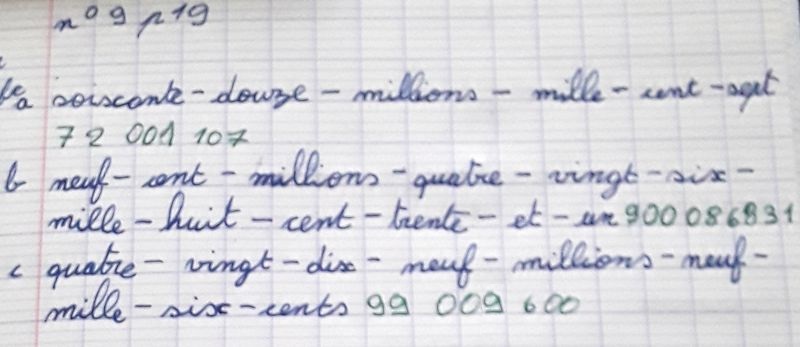 n° 9 p 19
a soiscante - douze - millions - mille - cent - sept
72 001 107
b neuf - cent - millions - quatre - vingt - six -
mille - huit - cent - trente - et - un 900 086 831
c quatre - vingt - dix - neuf - millions - neuf -
mille - six - cents 99 009 600